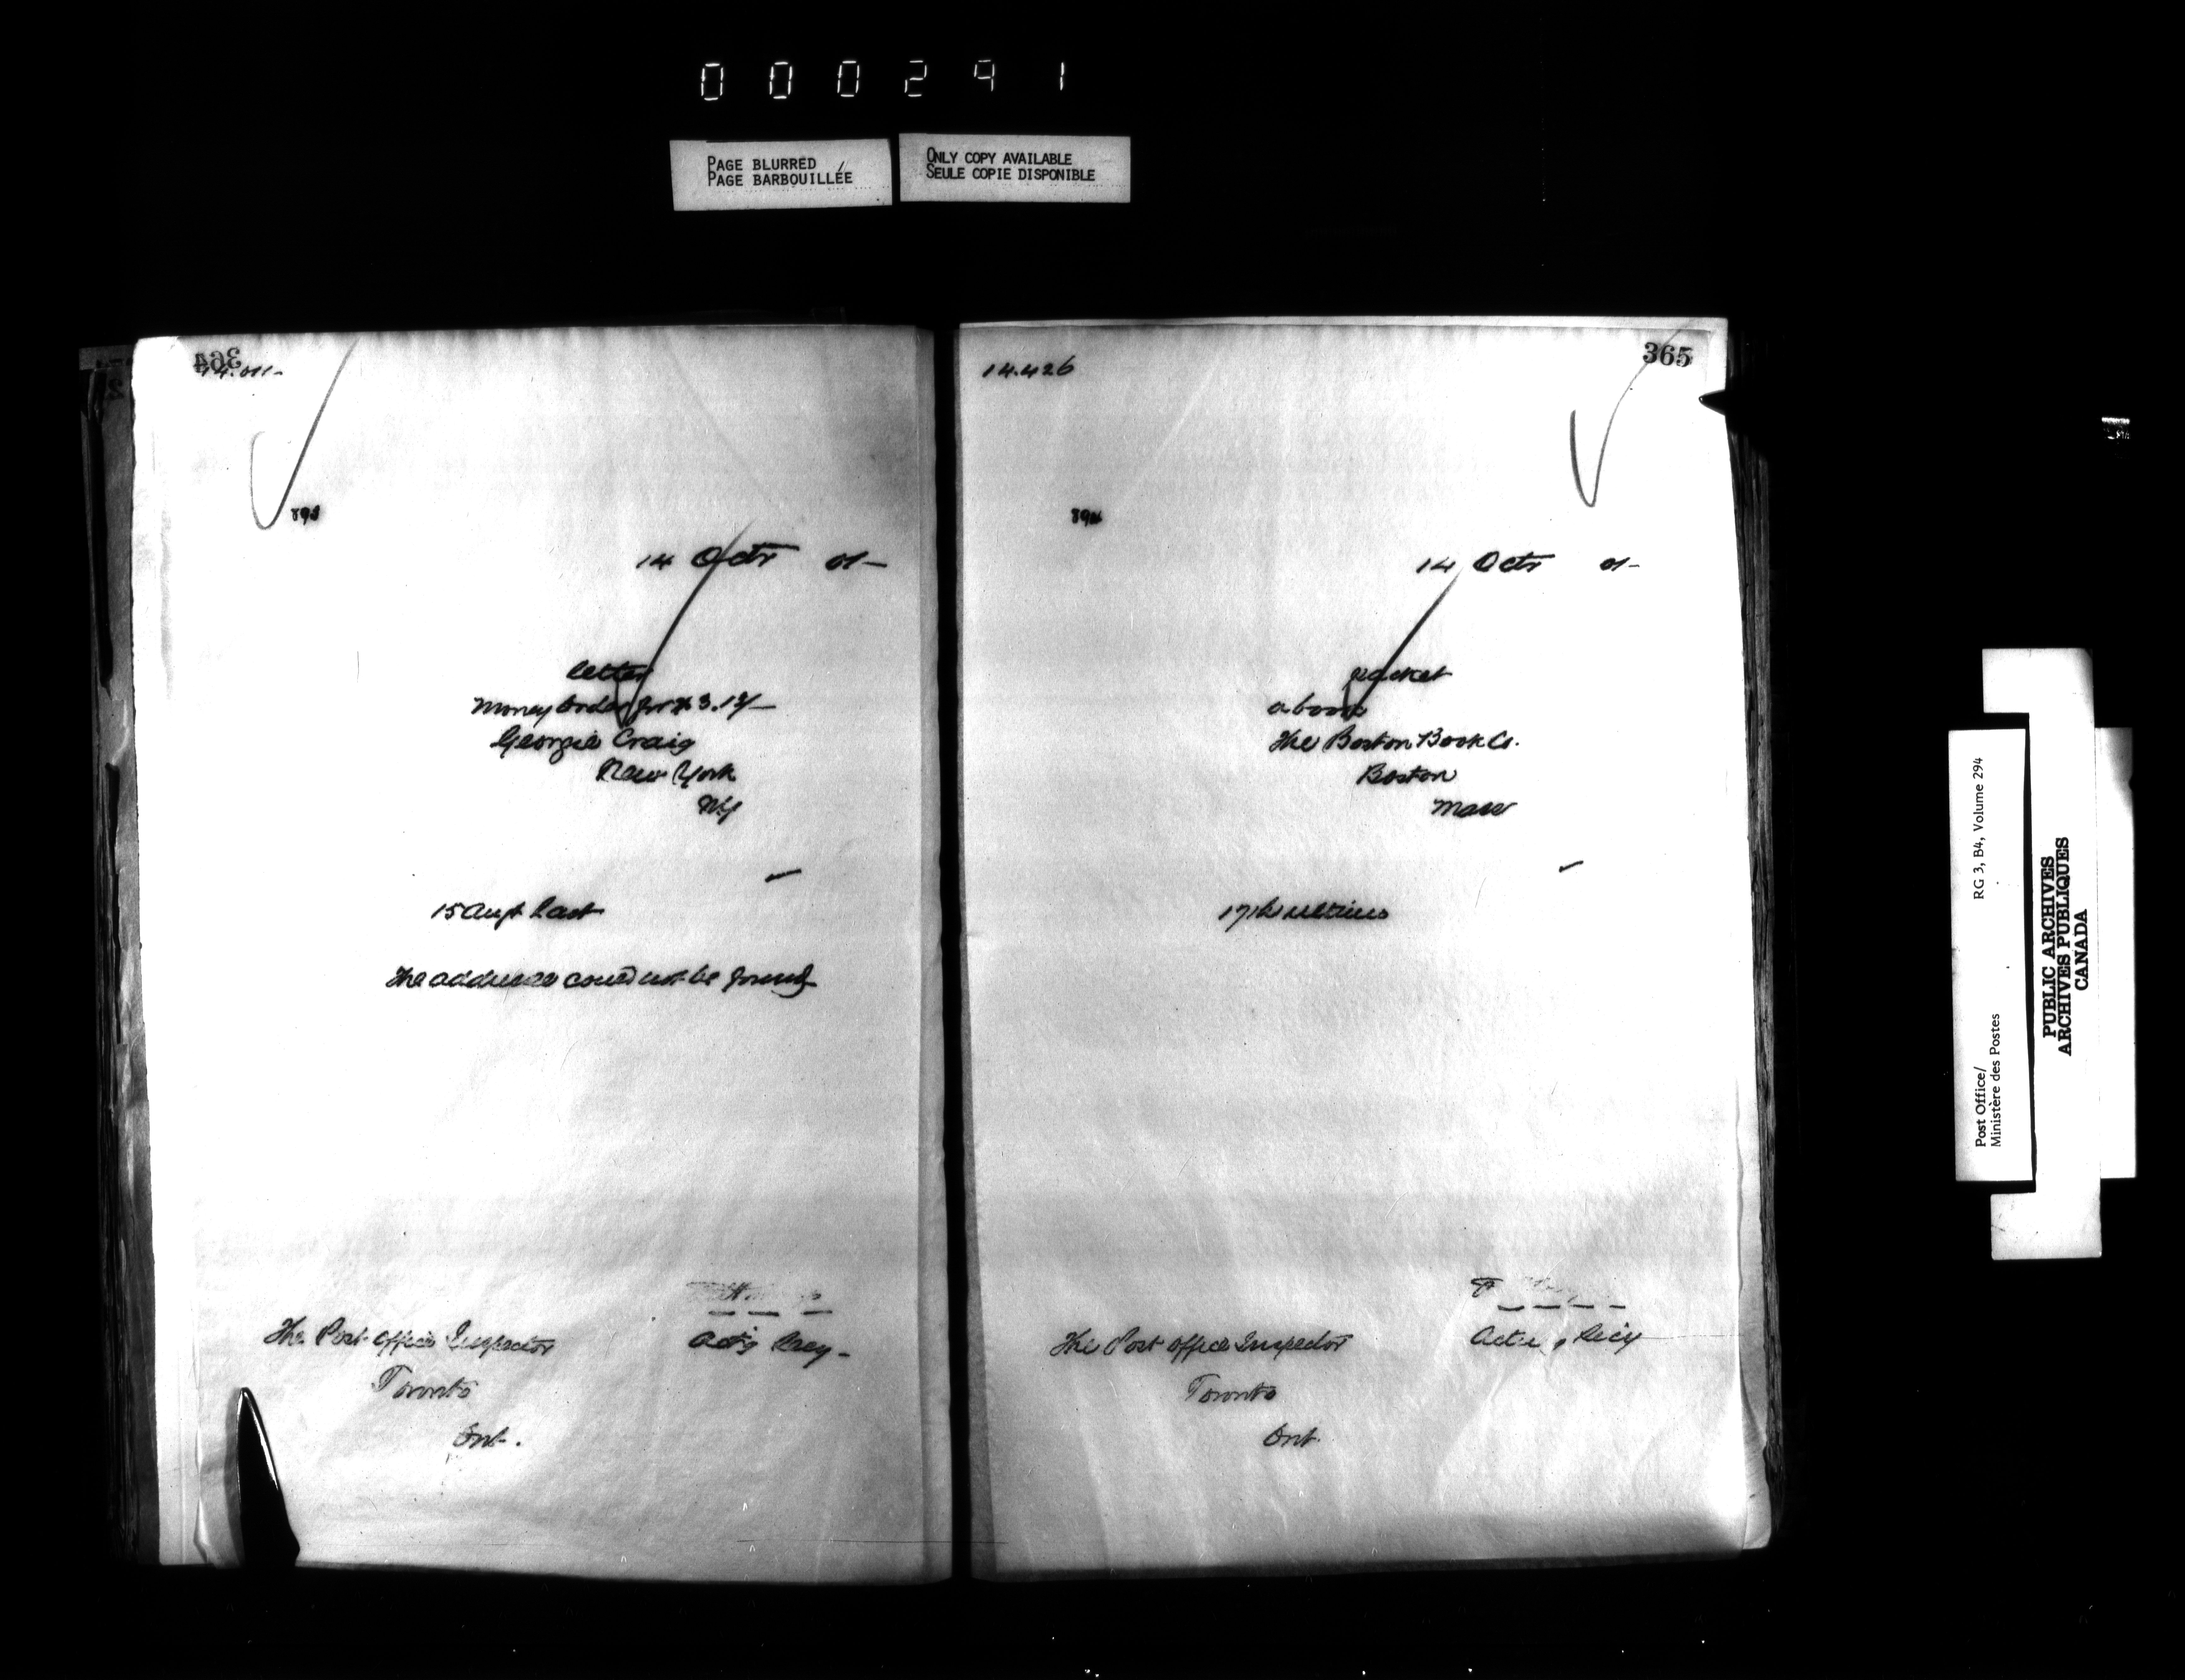 000291
PAGE BLURRED
PAGE BARBOUILLÉE
ONLY COPY AVAILABLE
SEULE COPIE DISPONIBLE
364
14 Octr 01-
letter
Money Order for $3.
Georgie Craig
New York
N.Y
15 Augt last
The addressee could not be found
Act'g Secy-
The Post Office Inspector
Toronto
Ont.
365
14.426
14 Octr 01-
packet
a book
The Boston Book Co.
Boston
Mass
17th ultimo
Secy
The Post Office Inspector
Toronto
Ont
Post Office/
Ministère des Postes
RG 3, B4, Volume 294
PUBLIC ARCHIVES
ARCHIVES PUBLIQUES
CANADA